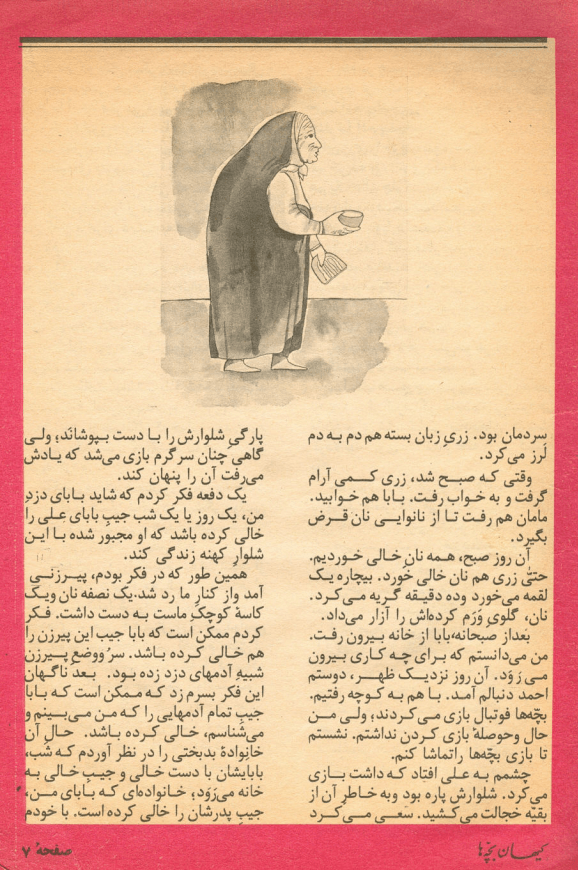 سردمان بود. زریِ زبان بسته هم دم به دم
لَرز می‌کرد.
وقتی که صبح شد، زری کمی آرام
گرفت و به خواب رفت. بابا هم خوابید.
مامان هم رفت تا از نانوایی نان قرض
بگیرد.
آن روز صبح، همه نانِ خالی خوردیم.
حتّی زری هم نان خالی خُورد. بیچاره یک
لقمه می‌خورد وده دقیقه گریه می‌کرد.
نان، گلویِ وَرَم کرده‌اش را آزار می‌داد.
بعداز صبحانه،بابا از خانه بیرون رفت.
من می‌دانستم که برای چه کاری بیرون
می‌رَوَد. آن روز نزدیک ظهر، دوستم
احمد دنبالم آمد. با هم به کوچه رفتیم.
بچّه‌ها فوتبال بازی می‌کردند؛ ولی من
حال وحوصلهٔ بازی کردن نداشتم. نشستم
تا بازی بچّه‌ها راتماشا کنم.
چشمم به علی افتاد که داشت بازی
می‌کرد. شلوارش پاره بود وبه خاطرِ آن از
بقیّه خجالت می‌کشید. سعی می‌کرد
پارگیِ شلوارش را با دست بپوشاند؛ ولی
گاهی چنان سرگرم بازی می‌شد که یادش
می‌رفت آن را پنهان کند.
یک دفعه فکر کردم که شاید بابای دزدِ
من، یک روز یا یک شب جیبِ بابای علی را
خالی کرده باشد که او مجبور شده با این
شلوارِ کهنه زندگی کند.
همین طور که در فکر بودم، پیرزنی
آمد واز کنارِ ما رد شد.یک نصفه نان ویک
کاسهٔ کوچکِ ماست به دست داشت. فکر
کردم ممکن است که بابا جیب این پیرزن را
هم خالی کرده باشد. سرُ ووضعِ پیرزن
شبیهِ آدمهای دزد زده بود. بعد ناگهان
این فکر بسرم زد که ممکن است که بابا
جیبِ تمام آدمهایی را که من می‌بینم و
می‌شناسم، خالی کرده باشد. حالِ آن
خانوادهٔ بدبختی را در نظر آوردم که شب،
بابایشان با دست خالی و جیبِ خالی به
خانه می‌رَوَد؛ خانواده‌ای که بابای من،
جیبِ پدرشان را خالی کرده است. با خودم
کیهان بچّه‌ها
صفحهٔ ۷